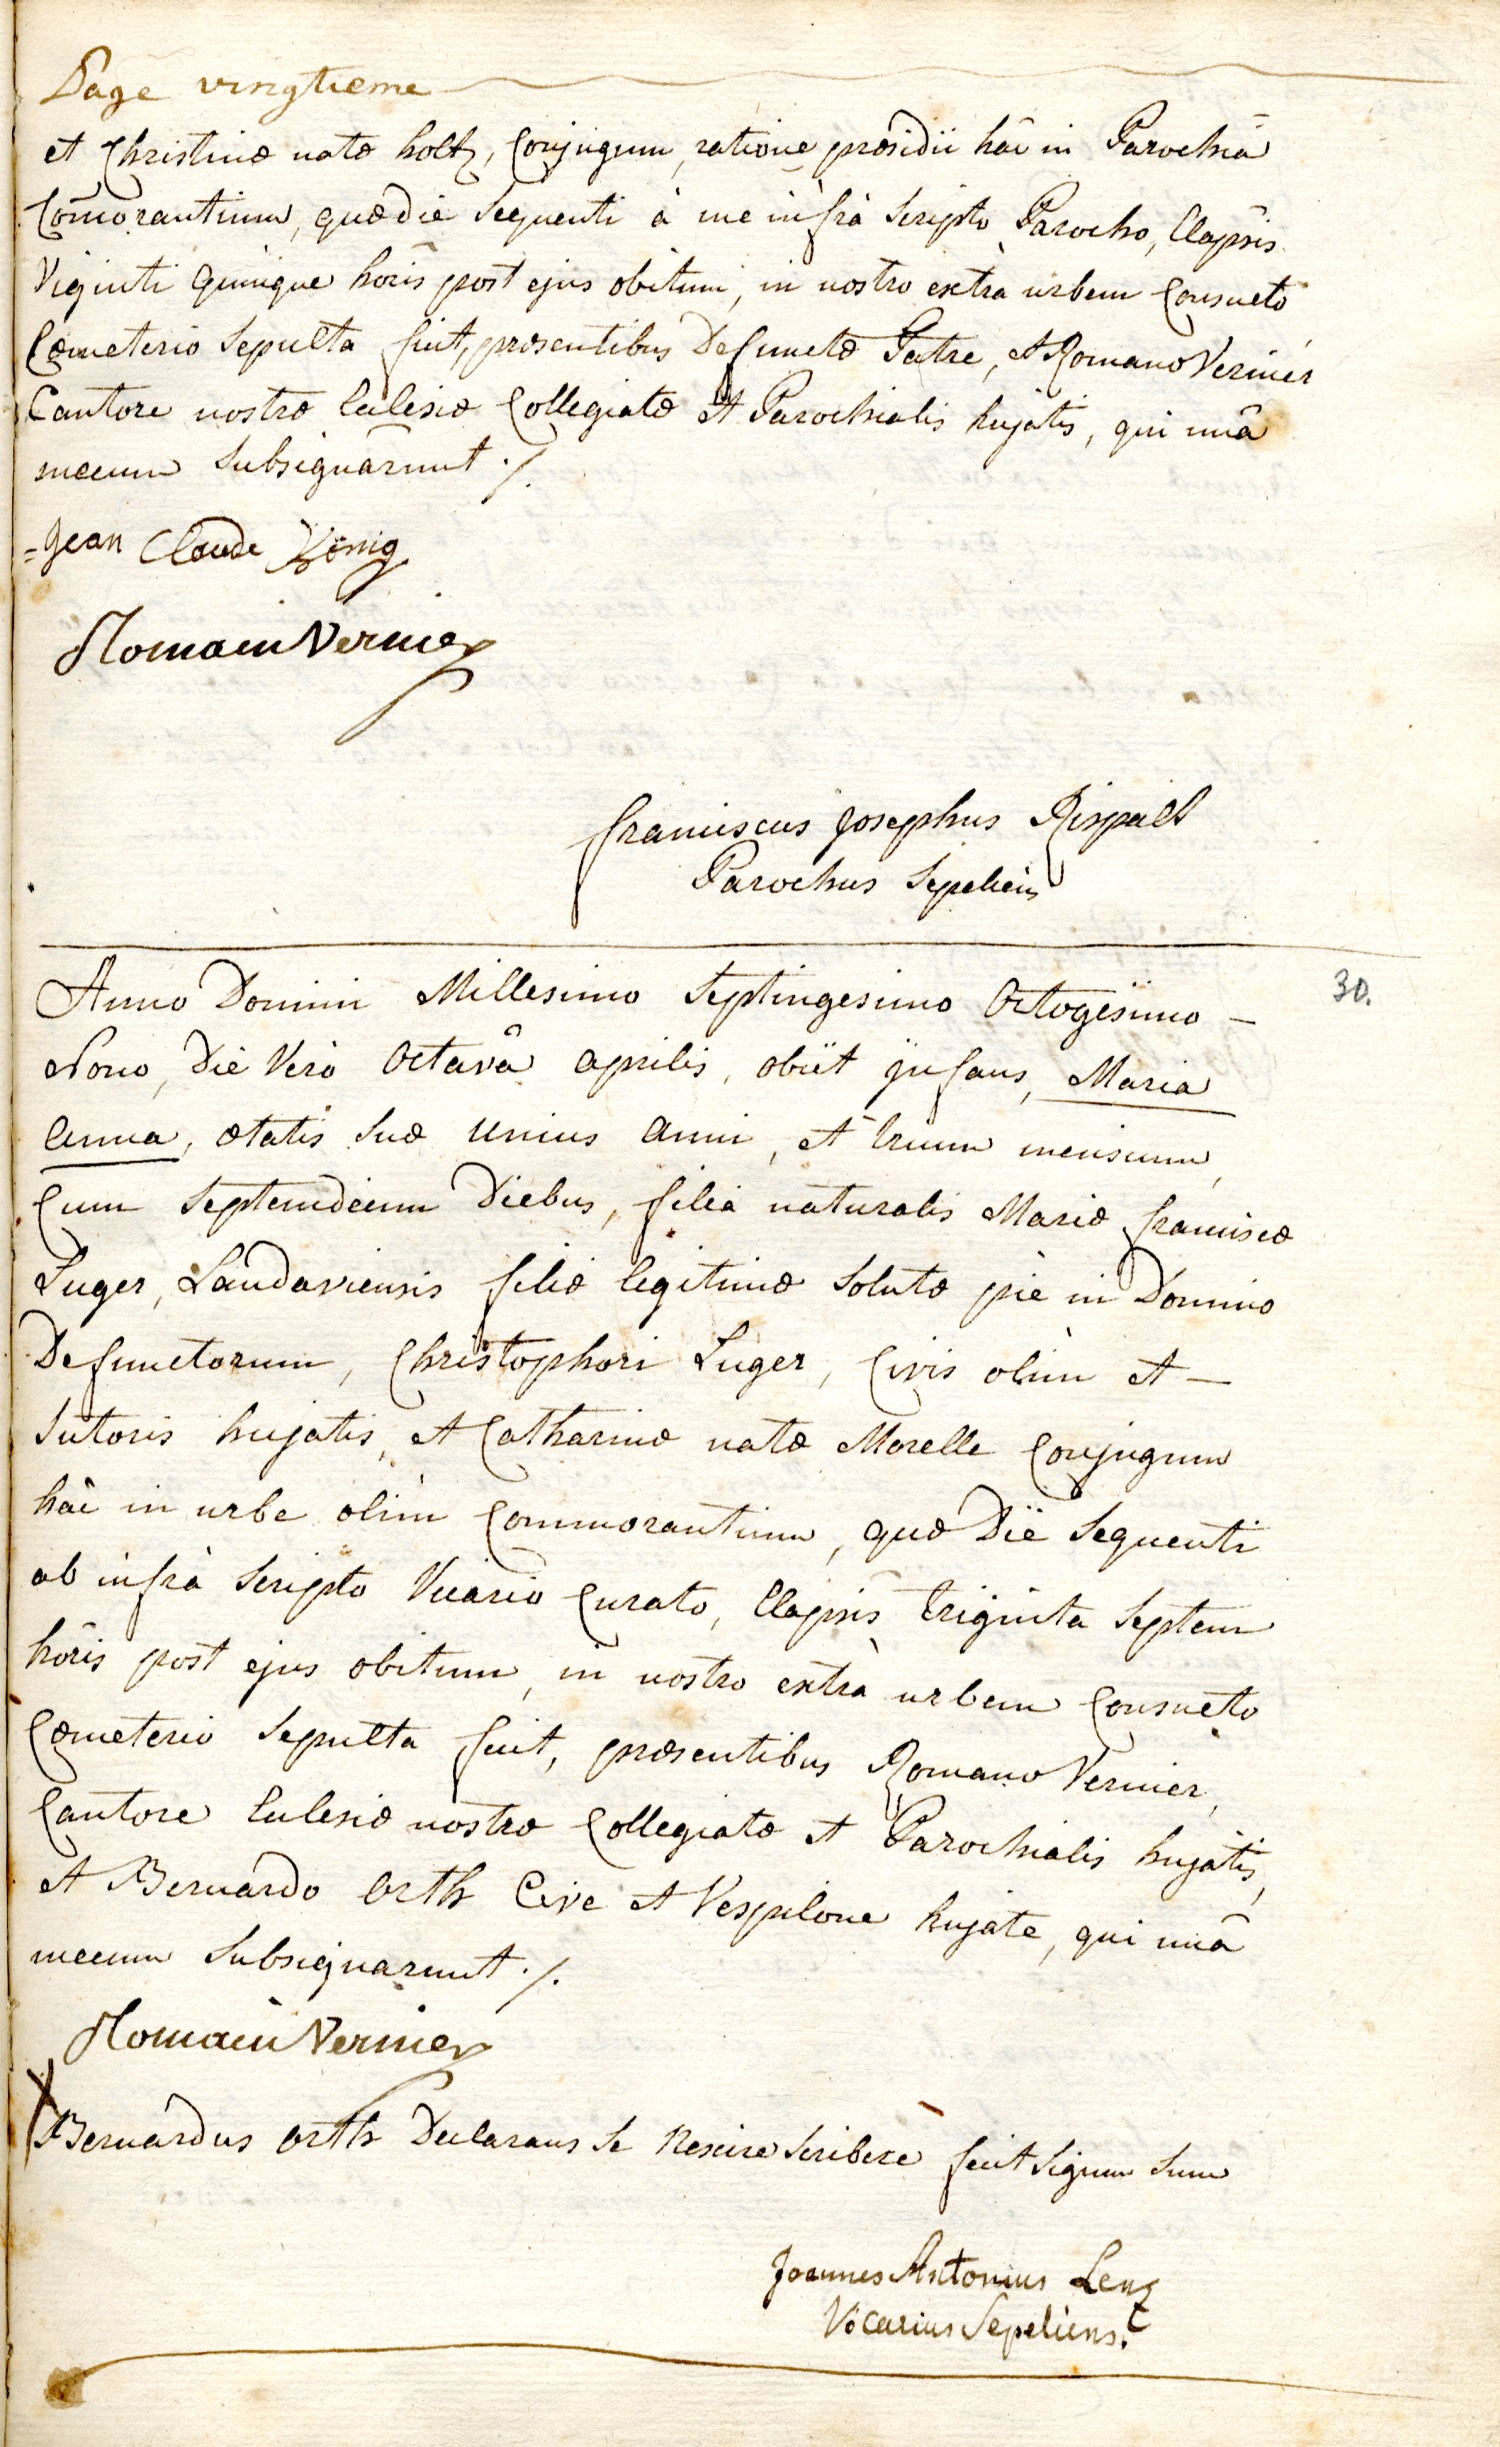 Page vingtieme
et Christinæ natæ holtz, Conjugum, ratione præsidii hâc in Parochiâ
Com̄orantium, quæ die Sequenti à me infrà Scripto Parocho, Elapsis
Viginti quinque horis post ejus obitum, in nostro extrà urbem Consueto
Cœmeterio Sepulta fuit, præsentibus Defunctæ Patre, et Romano Vernier
Cantore nostræ Eclesiæ Collegiatæ et Parochialis hujatis, qui unâ
mecum Subsignârunt ./.
Jean Claude König
Romain Vernier
franciscus Josephus Rispalt
Parochus Sepeliens
30.
Anno Domini Millesimo Septingesimo Octogesimo –
Nono, Die Verò Octavâ aprilis, obiit jnfans, Maria
Anna, ætatis Suæ unius anni, et trium mensium,
Cum Septemdecim Diebus, filia naturalis Mariæ franciscæ
Luger, Landaviensis filiæ legitimæ Solutæ piè in Domino
Defunctorum, Christophori Luger, Civis olim et –
Sutoris hujatis, et Catharinæ natæ Morelle Conjugum
hâc in urbe olim Commorantium, quæ Die Sequenti
ab infrà Scripto Vicario Curato, Elapsis triginta Septem
horis post ejus obitum, in nostro extrà urbem Consueto
Cœmeterio Sepulta fuit, præsentibus Romano Vernier,
Cantore Eclesiæ nostræ Collegiatæ et Parochialis hujatis,
et Bernardo Orth Cive et Vespilone hujate, qui unâ
mecum Subsignarunt ./.
Romain Vernier
X
Bernardus Orth Declarans Se Nescire Scribere fecit Signum Suum
Joannes Antonius Lenz
Vicarius Sepeliens.